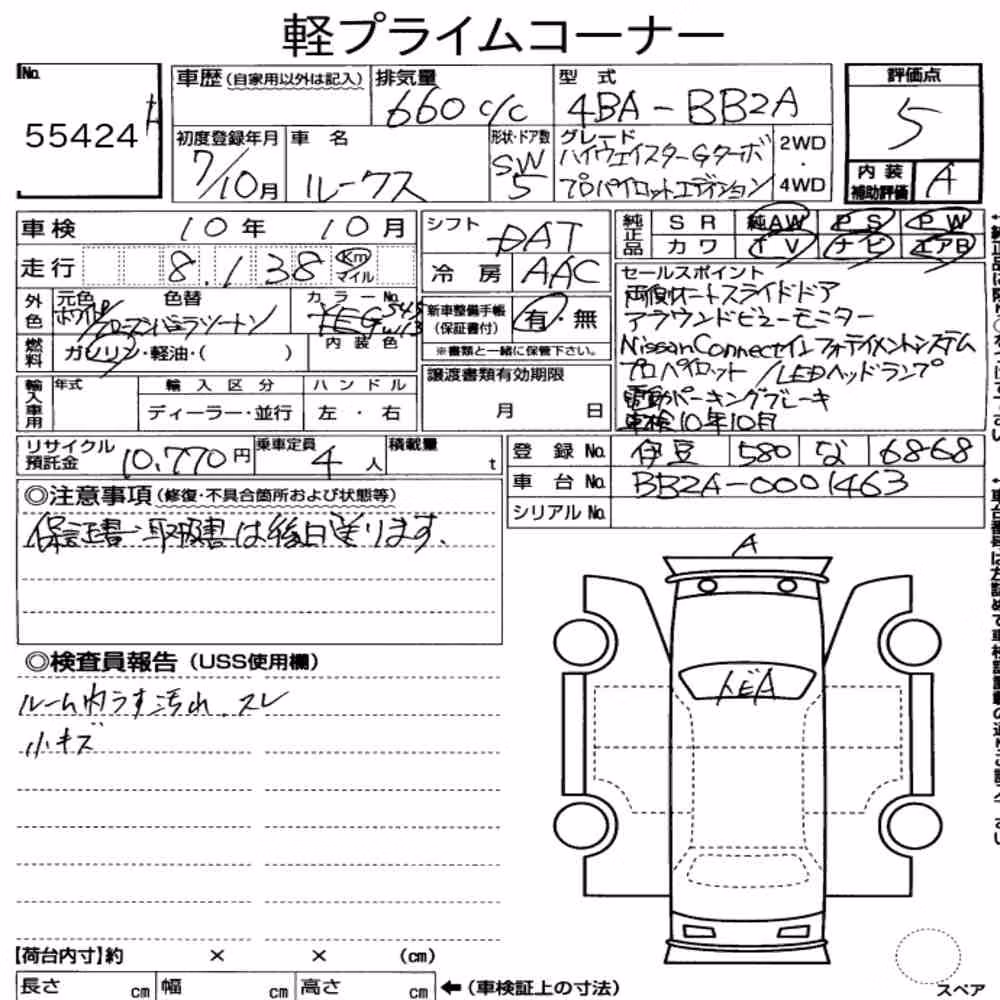 軽プライムコーナー
No.
55424
車歴(自家用以外は記入)
排気量
660 c/c
型 式
4BA - BB2A
評価点
5
初度登録年月
7/10月
車 名
ルークス
形状・ドア数
SW
5
グレード
ハイウェイスターGターボ
プロパイロットエディション
2WD
・
4WD
内 装
補助評価
A
車検 10年 10月
シフト
DAT
純正品
S R 純AW P S P W
カ ワ T V ナ ビ エアB
走行 8.138 Km
マイル
冷 房 AAC
外色
元色 色替 カ ラ ー No.
ホワイト
XEG
内 装 色
新車整備手帳
(保証書付)
有・無
※書類と一緒に保管下さい。
セールスポイント
両側オートスライドドア
アラウンドビューモニター
NissanConnectインフォテイメントシステム
プロパイロット/LEDヘッドランプ
電動パーキングブレーキ
車検10年10月
燃料
ガソリン・軽油・( )
輸入車用
年式 輸 入 区 分 ハ ン ド ル
ディーラー・並行 左 ・ 右
譲渡書類有効期限
月 日
リサイクル
預託金
10,770円
乗車定員
4人
積載量
t
登 録 No. 伊豆 580 な 68-68
車 台 No. BB2A-0001463
シリアル No.
◎注意事項(修復・不具合箇所および状態等)
保証書・取扱書は後日送ります.
◎検査員報告(USS使用欄)
ルーム内うす汚れ.スレ
小キズ
A
トビA
【荷台内寸】約 × × (cm)
長さ cm 幅 cm 高さ cm ←(車検証上の寸法)
スペア